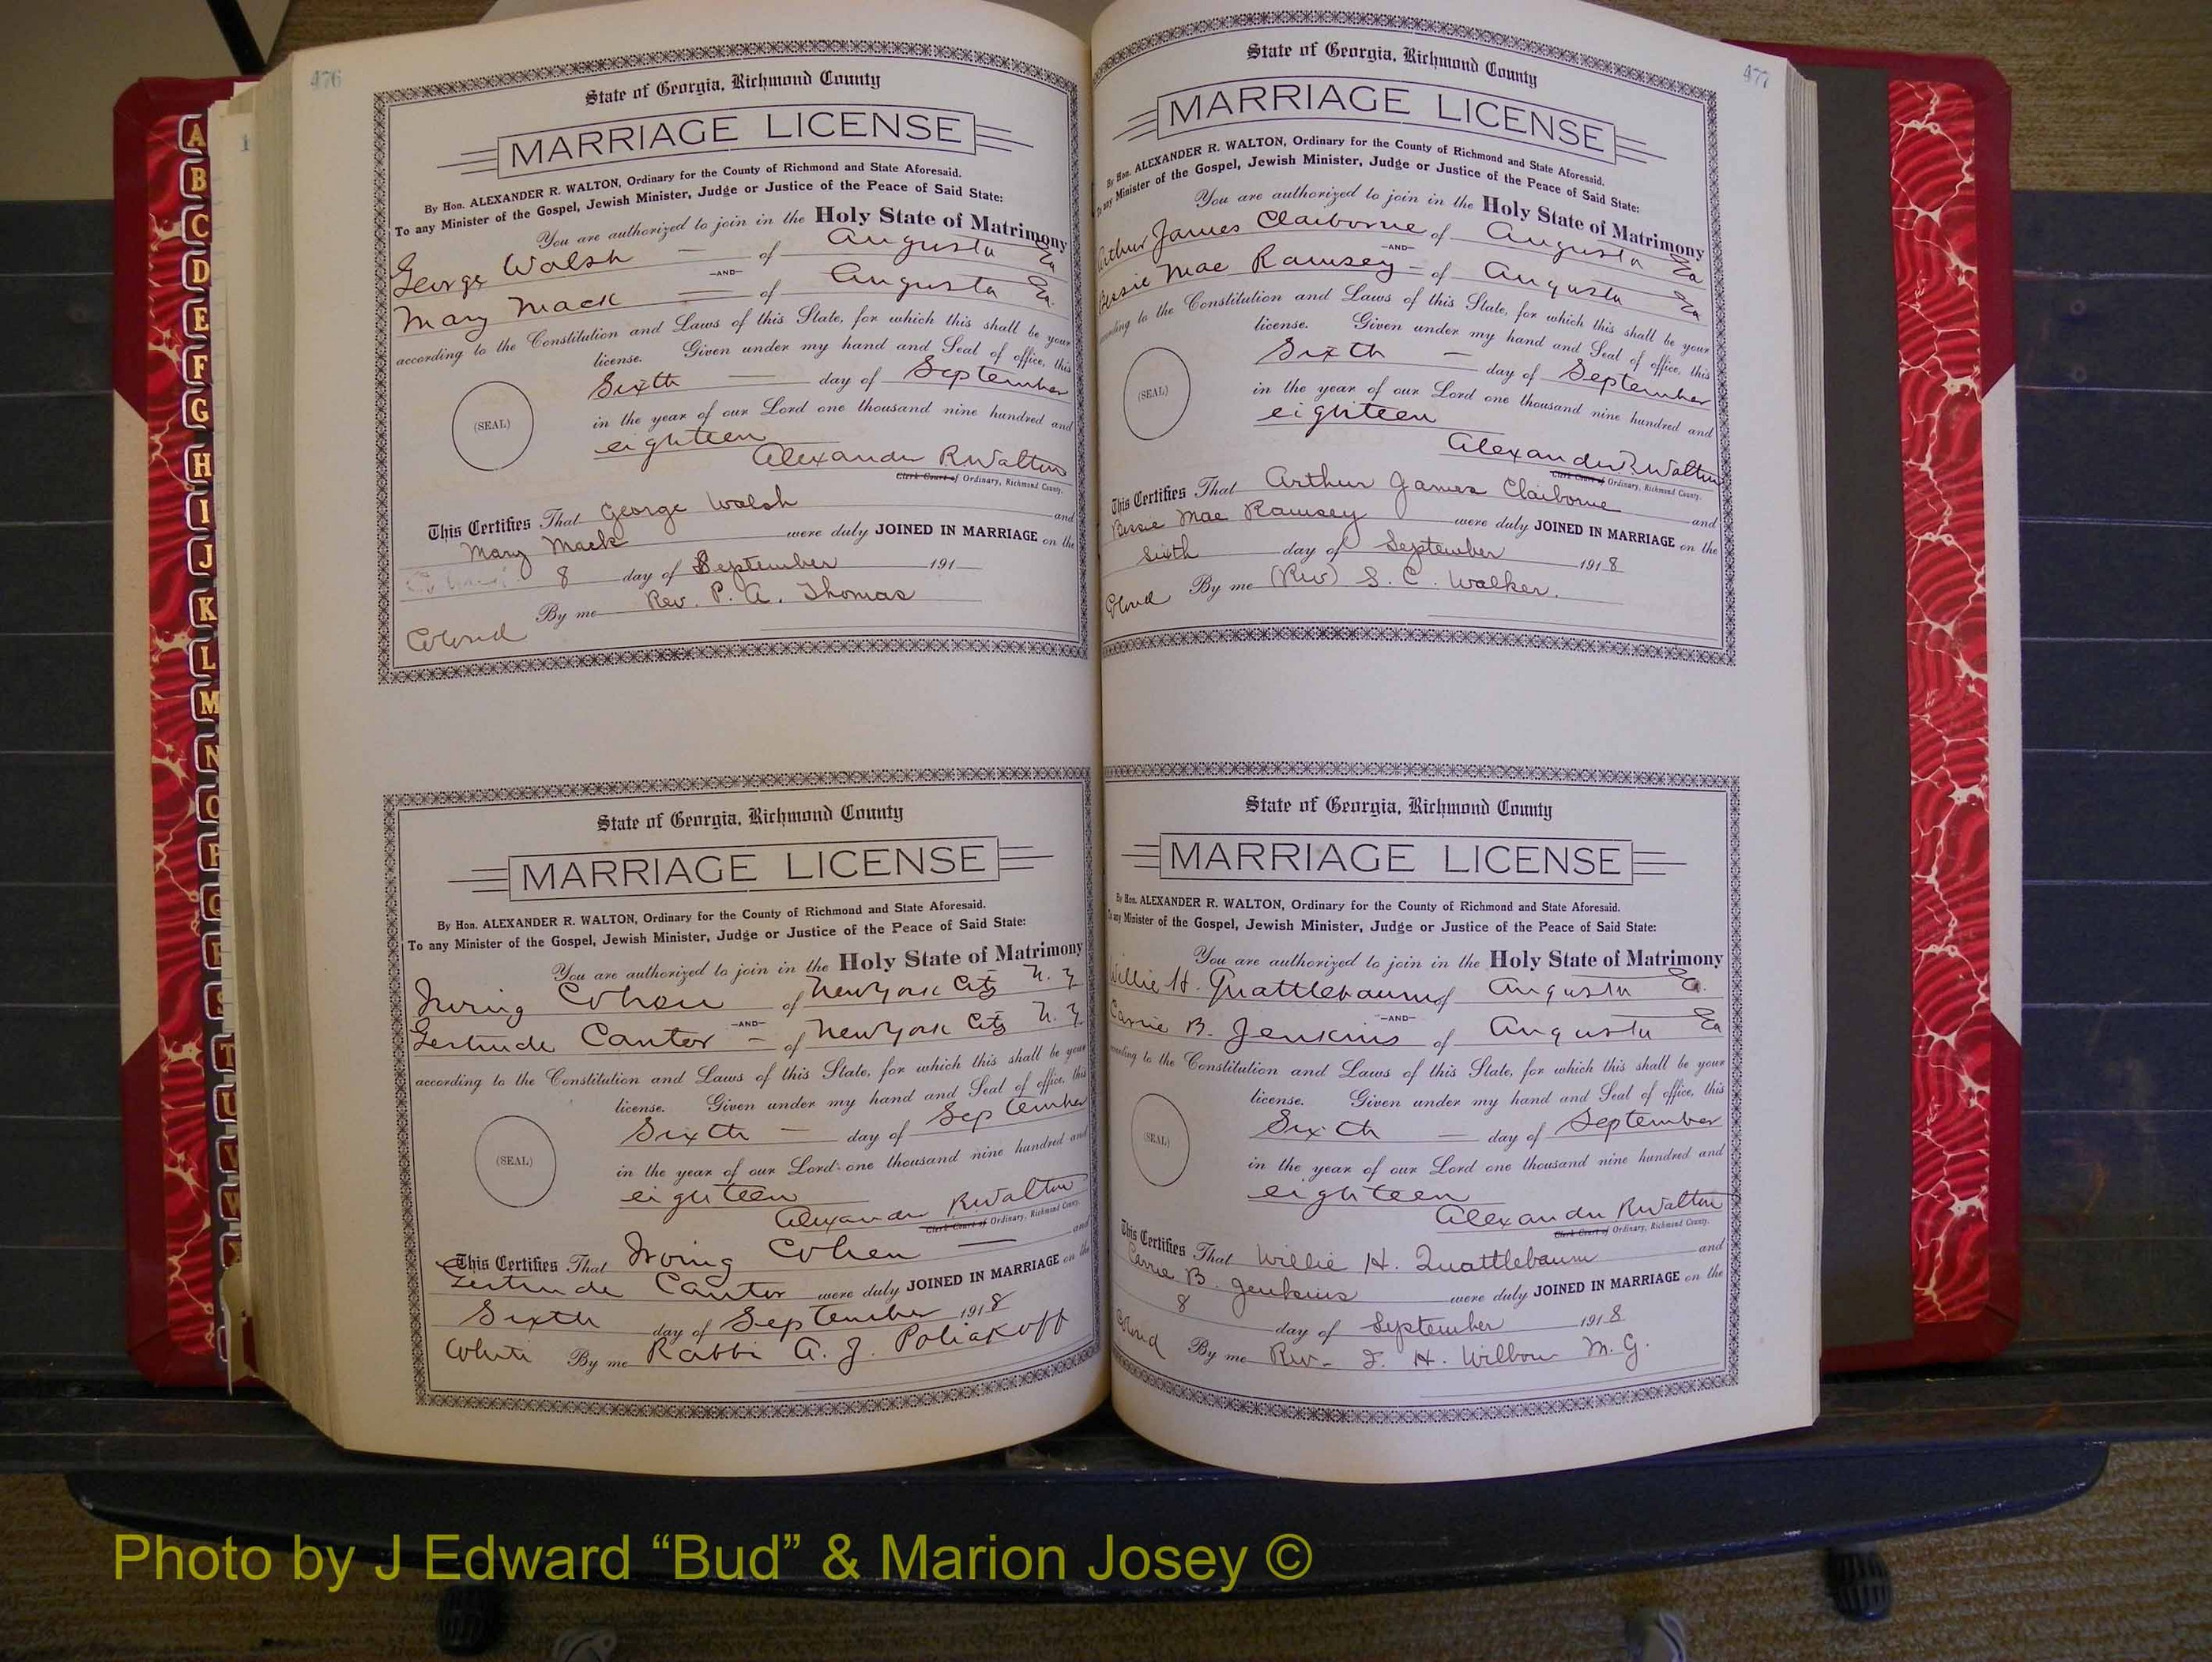 476
State of Georgia, Richmond County
MARRIAGE LICENSE
By Hon. ALEXANDER R. WALTON, Ordinary for the County of Richmond and State Aforesaid.
To any Minister of the Gospel, Jewish Minister, Judge or Justice of the Peace of Said State:
You are authorized to join in the Holy State of Matrimony
George Walsh of Augusta Ga
—AND—
Mary Mack of Augusta Ga.
according to the Constitution and Laws of this State, for which this shall be your
license. Given under my hand and Seal of office, this
Sixth — day of September
(SEAL)
in the year of our Lord one thousand nine hundred and
eighteen
Alexander R Walton
Clerk Court of Ordinary, Richmond County.
This Certifies That George Walsh and
Mary Mack were duly JOINED IN MARRIAGE on the
8 day of September 191
By me Rev. P. A. Thomas
Colored
State of Georgia, Richmond County
MARRIAGE LICENSE
By Hon. ALEXANDER R. WALTON, Ordinary for the County of Richmond and State Aforesaid.
To any Minister of the Gospel, Jewish Minister, Judge or Justice of the Peace of Said State:
You are authorized to join in the Holy State of Matrimony
Irving Cohen of New York City N. Y.
—AND—
Gertrude Cantor – of New York City N. Y.
according to the Constitution and Laws of this State, for which this shall be your
license. Given under my hand and Seal of office, this
Sixth — day of September
(SEAL)
in the year of our Lord one thousand nine hundred and
eighteen
Alexander R Walton
Clerk Court of Ordinary, Richmond County.
This Certifies That Irving Cohen — and
Gertrude Cantor were duly JOINED IN MARRIAGE on the
Sixth day of September 1918
White By me Rabbi A. J. Poliakoff
477
State of Georgia, Richmond County
MARRIAGE LICENSE
By Hon. ALEXANDER R. WALTON, Ordinary for the County of Richmond and State Aforesaid.
To any Minister of the Gospel, Jewish Minister, Judge or Justice of the Peace of Said State:
You are authorized to join in the Holy State of Matrimony
Arthur James Claiborne of Augusta Ga
—AND—
Bessie Mae Ramsey – of Augusta Ga
according to the Constitution and Laws of this State, for which this shall be your
license. Given under my hand and Seal of office, this
Sixth — day of September
(SEAL)
in the year of our Lord one thousand nine hundred and
eighteen
Alexander R Walton
Clerk Court of Ordinary, Richmond County.
This Certifies That Arthur James Claiborne and
Bessie Mae Ramsey were duly JOINED IN MARRIAGE on the
Sixth day of September 1918
Colored By me (Rev) S. C. Walker.
State of Georgia, Richmond County
MARRIAGE LICENSE
By Hon. ALEXANDER R. WALTON, Ordinary for the County of Richmond and State Aforesaid.
To any Minister of the Gospel, Jewish Minister, Judge or Justice of the Peace of Said State:
You are authorized to join in the Holy State of Matrimony
Willie H. Quattlebaum of Augusta Ga.
—AND—
Carrie B. Jenkins of Augusta Ga
according to the Constitution and Laws of this State, for which this shall be your
license. Given under my hand and Seal of office, this
Sixth — day of September
(SEAL)
in the year of our Lord one thousand nine hundred and
eighteen
Alexander R Walton
Clerk Court of Ordinary, Richmond County.
This Certifies That Willie H. Quattlebaum and
Carrie B. Jenkins were duly JOINED IN MARRIAGE on the
8 day of September 1918
Colored By me Rev. H. M. G.
A
B
C
D
E
F
G
H
I
J
K
L
M
N
O
P
Q
R
S
T
U
V
W
Photo by J Edward “Bud” & Marion Josey ©